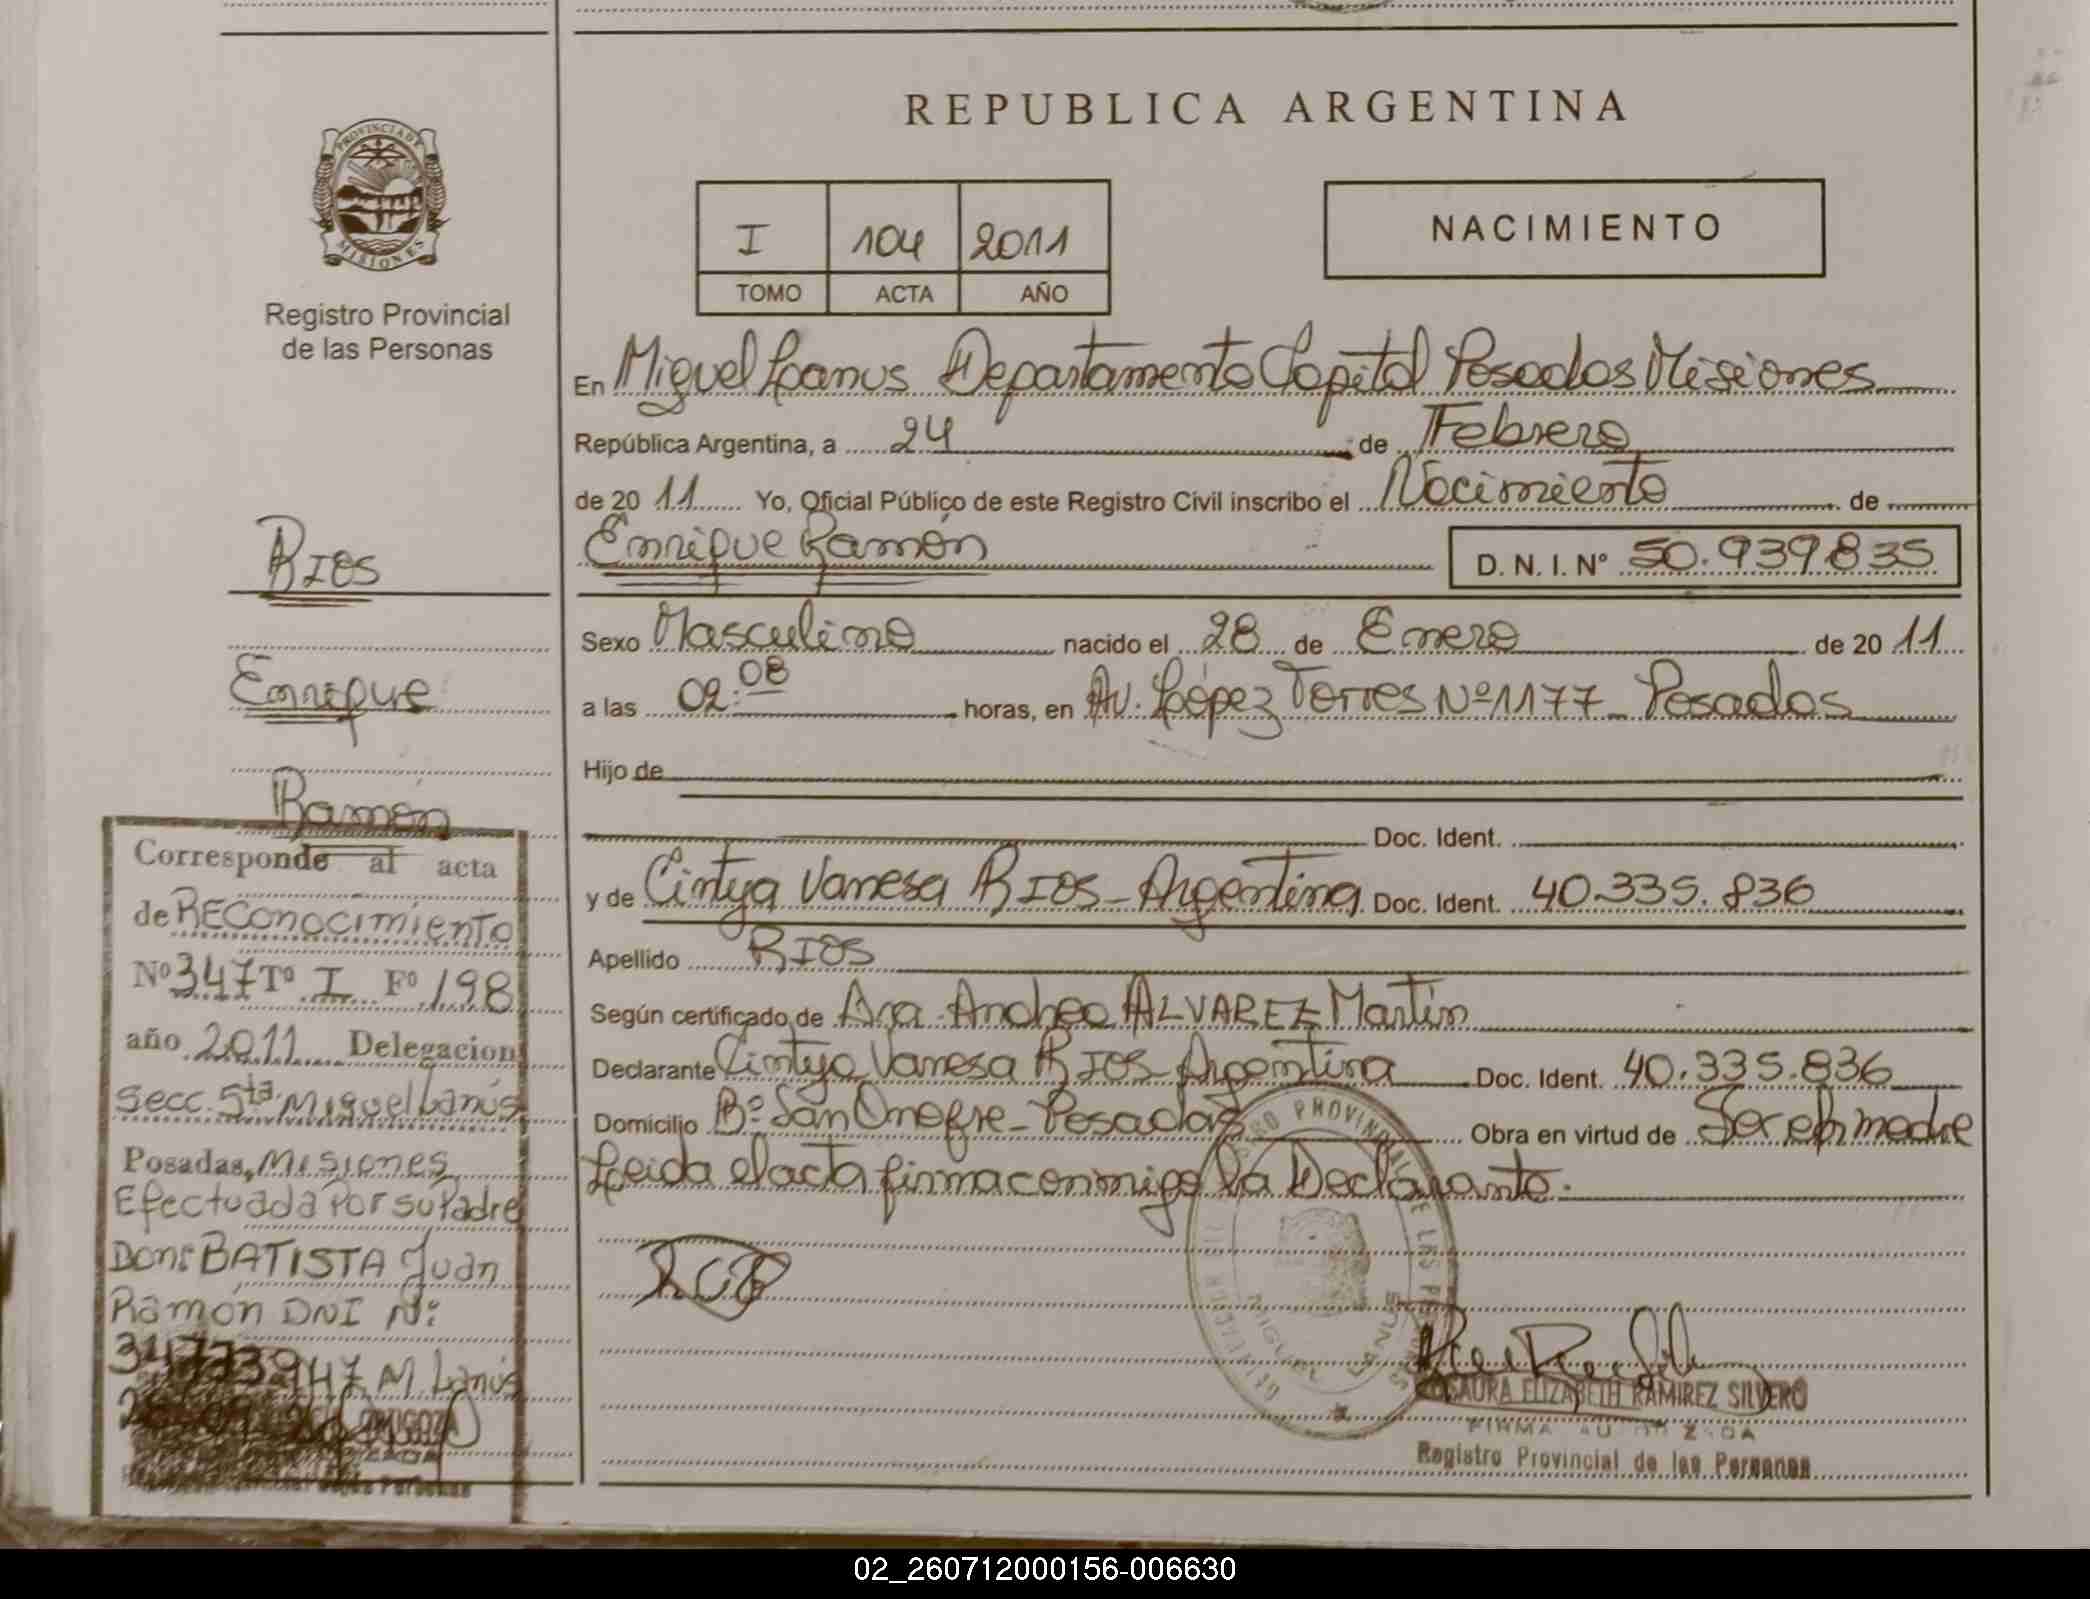 REPUBLICA ARGENTINA
PROVINCIA DE
MISIONES
Registro Provincial
de las Personas
I 104 2011
TOMO ACTA AÑO
NACIMIENTO
En Miguel Lanus Departamento Capital Posadas Misiones
República Argentina, a 24 de Febrero
de 20 11 Yo, Oficial Público de este Registro Civil inscribo el Nacimiento de
Enrique Ramón
D. N. I. Nº 50.939835
Sexo Masculino nacido el 28 de Enero de 20 11
a las 02:08 horas, en Av. López Torres Nº 1177 Posadas
Hijo de
Doc. Ident.
y de Cintya Vanesa RIOS - Argentina Doc. Ident. 40.335.836
Apellido RIOS
Según certificado de Ana Andrea ALVAREZ Martín
Declarante Cintya Vanesa RIOS Argentina Doc. Ident. 40.335.836
Domicilio Bº San Onofre - Posadas Obra en virtud de Ser la madre
Leida el acta firma conmigo la Declarante.
MIGUEL LANUS
ROSAURA ELIZABETH RAMIREZ SILVERO
FIRMA AUTORIZADA
Registro Provincial de las Personas
RIOS
Enrique
Ramón
Corresponde al acta
de REConocimiento
Nº 347 Tº I Fº 198
año 2011 Delegacion
Secc. 5ta Miguel Lanús
Posadas, Misiones
Efectuada Por su Padre
Don: BATISTA Juan
Ramón DNI Nº:
34773947 M. Lanús
02_260712000156-006630